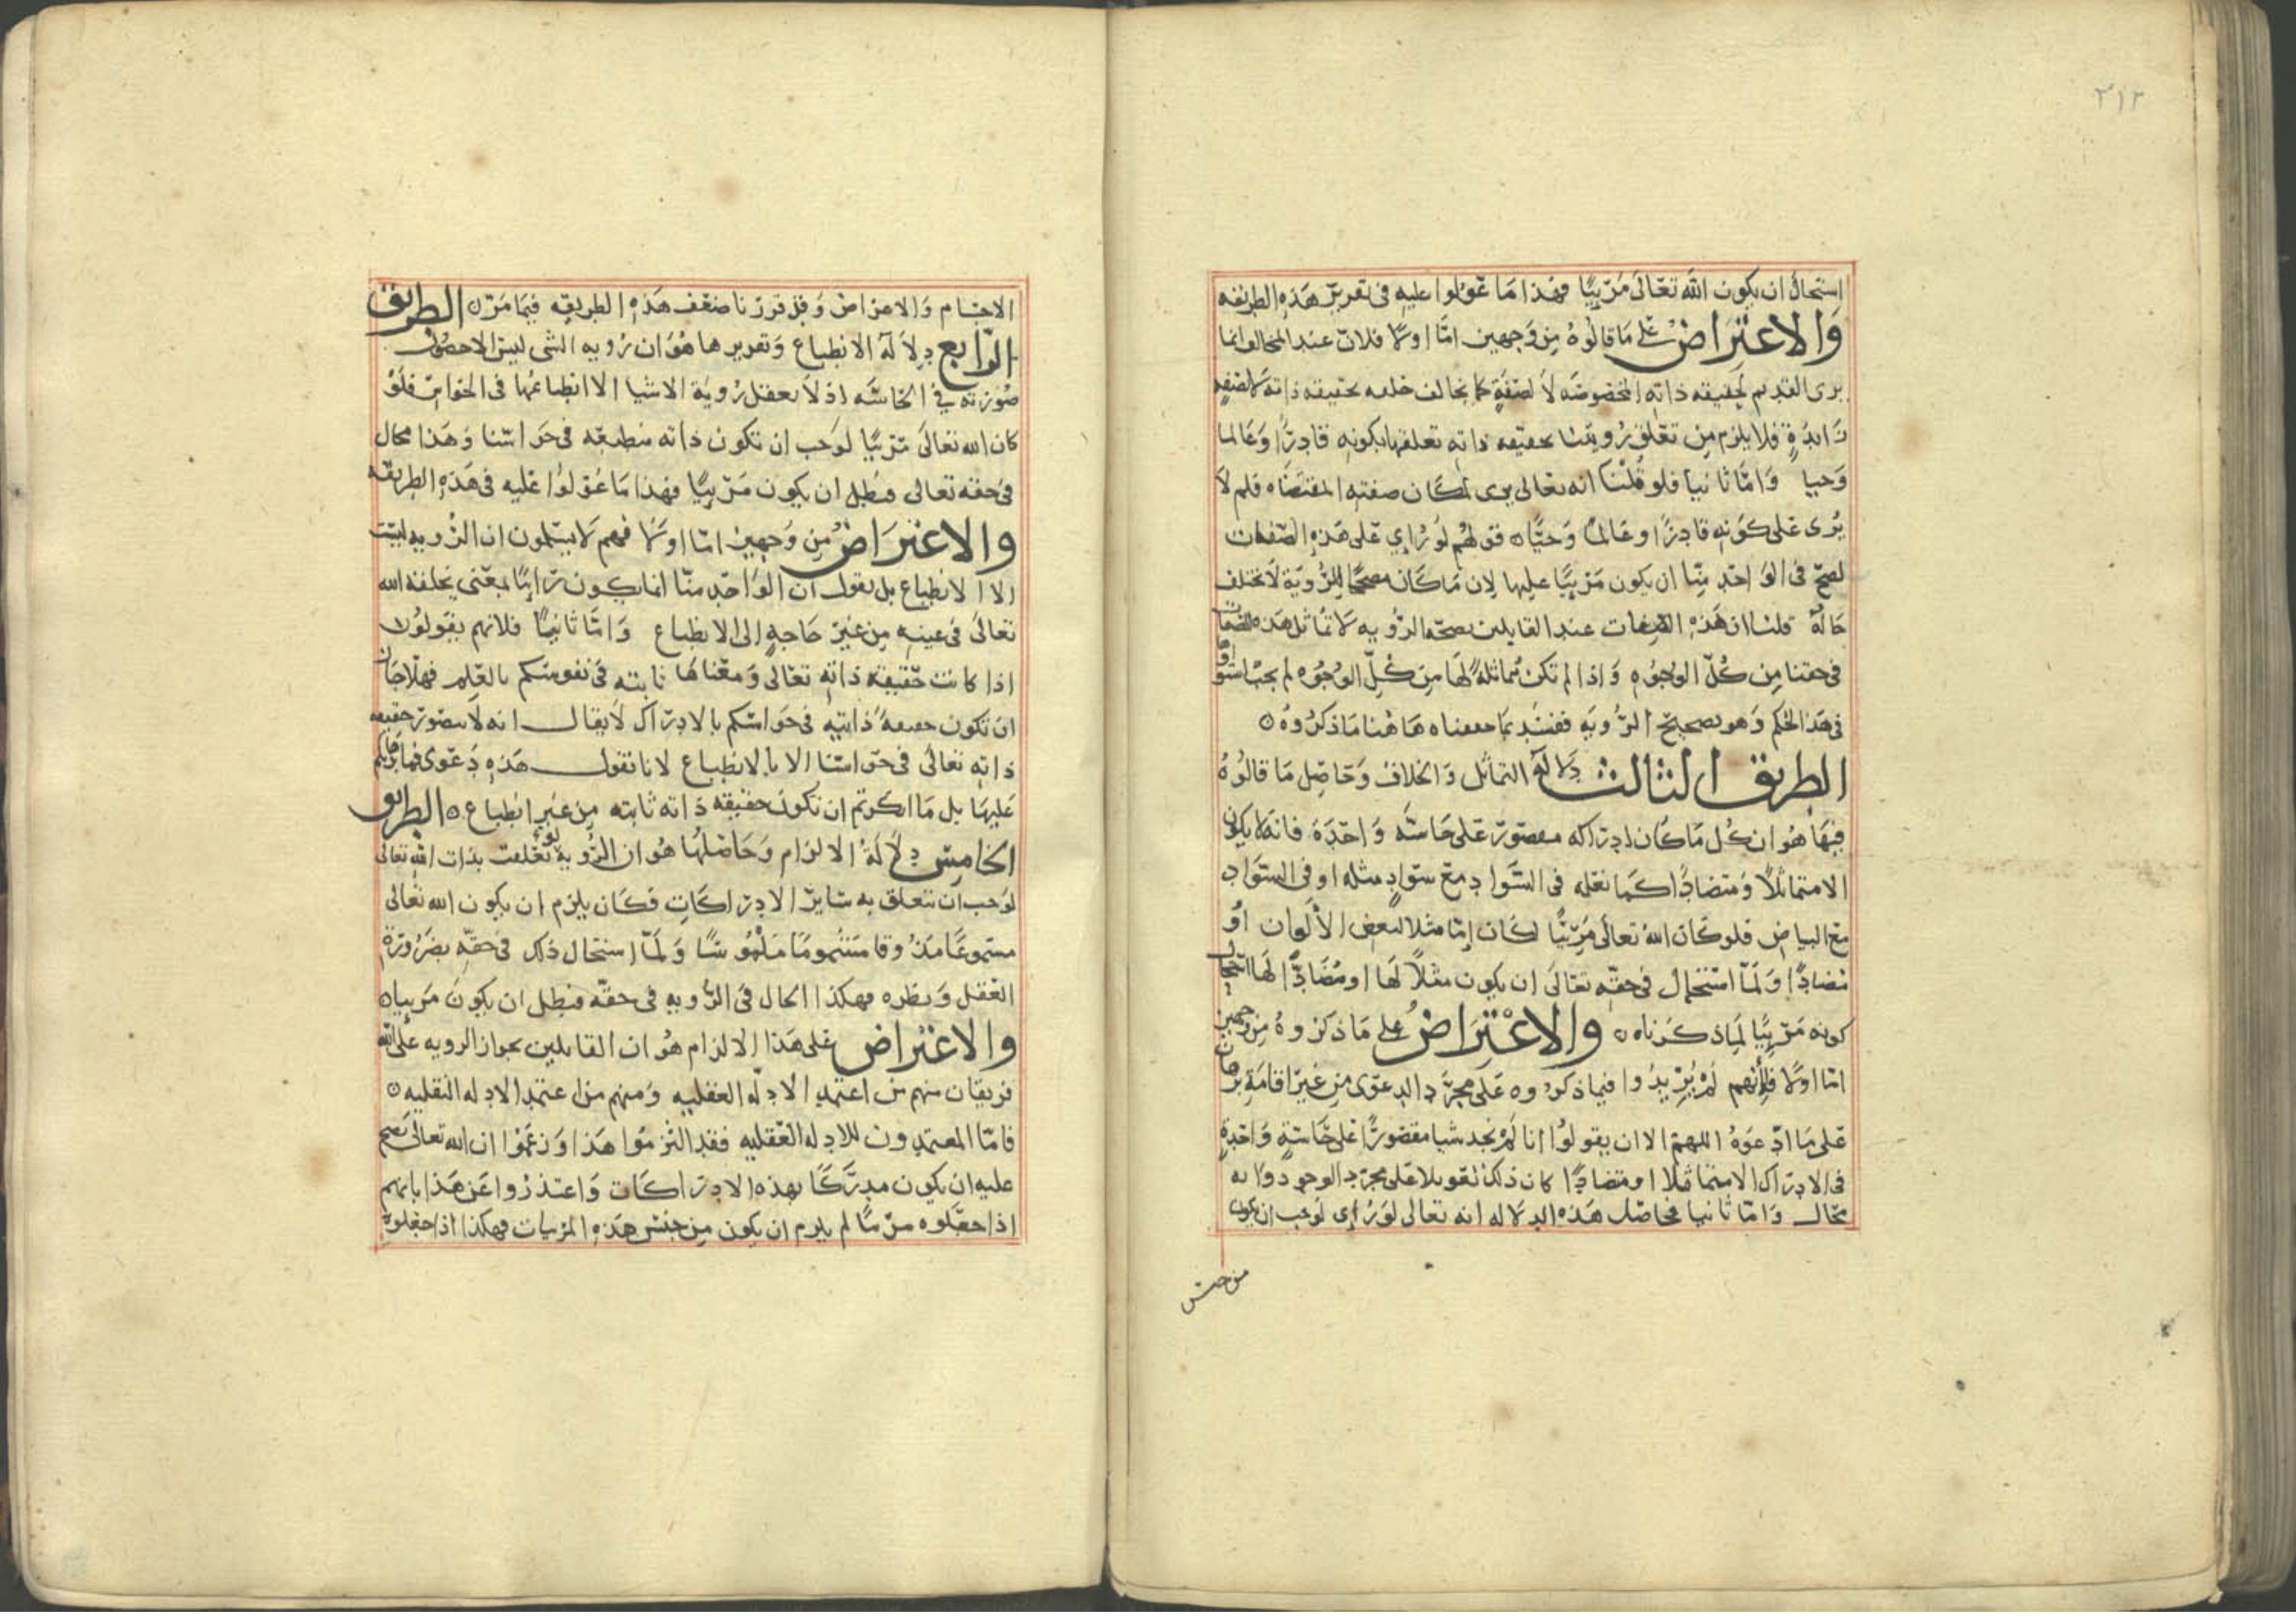 ٣١٢
استحال ان يكون الله تعالى مَرْئيًا فهذا مَا عَوّلوا عليه فى تقرير هَذه الطريقه
وَالاعتِرَاضُ على مَا قالوُهُ مِن وَجهين امَّا اولًا فلان عند المخالف انما
يرى القديم لحقيقه ذاته المخصوصَه لا لصفَةٍ كما يخالف خلقه بحقيقه ذاته لا لصفه
زَايدَةٍ فلا يلزم مِن تعَلّق رُويتنا بحقيقه ذاته تعلقها بكونه قادرًا وَعَالما
وَحيا وَامَّا ثانيا فلو قُلنا انه تعالى يرى لمكان صفته المقتضَاه فلم لا
يُرى عَلى كوَنه قادِرًا وعَالمًا وَحيًّا ٥ قولهُم لوَ رُاي عَلى هَذه الصّفات
لصحّ فى الوَاحد منّا ان يكون مَرْئيًا عليها لان مَا كان مصححًا للرُّويَة لا تختلف
حَالهُ قلنا ان هَذه الصّفات عند القايلين بصحّه الرُّويه لا تمُاثل هَذه الصفات
فى حقنا مِن كُلّ الوجوُه وَاذا لم تكن مُماثلة لهَا مِن كُلّ الوجُوُه لم يجبْ استواوها
فى هَذا الحُكم وَهو تصحيحَ الرُّويَه ففسَد بمَا حققناه هَاهُنا مَا ذكرُوهُ ٥
الطريق الثالث دِلالة التماثل وَالخلاف وَحَاصِل مَا قالوُهُ
فيهَا هُو ان كُل مَا كان ادرَاكه مقصورً عَلى حَاسَّه وَاحِدَة فانه لا يكون
الا متماثلًا وَمتضادًّا كمَا نقله فى السَّوادِ مَع سَوادٍ مثله او فى السَوَاد
مَع البياضِ فلو كان الله تعالى مَرْئيًّا لكان إمَّا مثلا لبعض الألوان اوَ
مُضادًّا وَلمَّا استحال فى حقّه تعَالىَ ان يكون مثلًا لهَا او مُضَادًّا لهَا استحال
كونه مَرْئيًّا لِمَا ذكرناه ٥ والاعْتِرَاضُ على مَا ذكروهُ مِن وجهين
امّا اولًا فلأنهم لمْ يُزيدُوا فيما ذكروه عَلى مجرَّد الدعوَى مِن غير اقامَة برهان
عَلى مَا ادّعوَهُ اللهمّ الا ان يقولوُا انا لمْ نجد شيا مقصُورًا عَلى حَاسّةٍ وَاحِدةٍ
فى الادرَاك الا متماثلا او متضادًّا كان ذلك تعويلا عَلى مجرّد الوجود وانه
محَال وَامّا ثانيا فحاصل هَذه الدلاله انه تعالى لوَ رُاى لوَجب ان يكون
من جنس
الاجسَام وَالاعرَاض وَقد قررْنا ضعْف هَذه الطريقه فيمَا مَرّ ٥ الطريق
الرّابع دِلالَة الانطباع وَتقريرها هُوَ ان رُويه الشى ليسَ الا حصُول
صُوْرَته فى الحَاسَّه اذ لا يعقل رُويَة الاشيا الا انطباعُها فى الحَوَاسّ فلَوْ
كان الله تعالىَ مَرْئيًّا لوَجب ان تكون ذاته منطبعَه فى حَوَاسّنا وَهَذا محَال
فى حقه تعالى فبَطل ان يكون مَرْئيًّا فهذا مَا عَوّلوُا عَليه فى هَذه الطريقه
والاعْتِرَاضُ مِن وَجهين امّا اولًا فهم لا يسَلمون ان الرُّويه ليسَت
الا الانطباع بل نقول ان الوَاحِد منّا انما يكون رَائيًا لمعْنى يخلقه الله
تعالىَ فى عينه مِن غيْر حَاجةٍ إلى الانطباع وَامَّا ثانيًا فلانهم يقولوُن
اذا كانت حقيقه ذاته تعَالى وَمعْناهَا ثابته فى نفوسكم بالعِلم فهلّا جَاز
ان تكون حقيقهُ ذاته فى حَواسّكم بالادرَاك لا يقال انه لا يتصَور حقيقه
ذاته تعَالىَ فى حَوَاسّنا الا بالانطباع لانا نقول هَذه دَعوى فما برهانكم
عَليهَا بل مَا انكرتم ان تكون حقيقه ذاته ثابته مِن غير انطباع ٥ الطريق
الخامِس دِلالَةُ الالزام وَحَاصلهُا هُو ان الرُّويه لوَ تعَلقت بذات الله تعالى
لوَجب ان تتعلق به سَاير الادرَاكاتِ فكان يلزم ان يكون الله تعالى
مسموعًا مَذُوقا مَشمُومًا مَلمُوسًا وَلمَّا استحال ذلك فى حقّه بضرُورَة
العَقل وَنظره فهكذا الحال فى الرُّويه فى حقه فبَطل ان يكون مَرئيا ٥
والاعْتراض عَلى هَذا الالزام هُو ان القايلين بجواز الرويه عَلى الله
فريقان منهم مَن اعتمَد الادلّه العقليه وَمنهم من اعتمَد الادله النقليه ٥
فامّا المعتمِدون للادله العَقليه فقد التزموُا هَذا وَزعَمُوا ان الله تعالىَ يصح
عليه ان يكون مدرَكًا بهذه الادرَاكات وَاعتذرُوا عَن هَذا بانهم
اذا جعَلوه مرْئيًّا لم يلزم ان يكون مِن جنس هَذه المرئيات فهكذا اذا جعَلوهُ